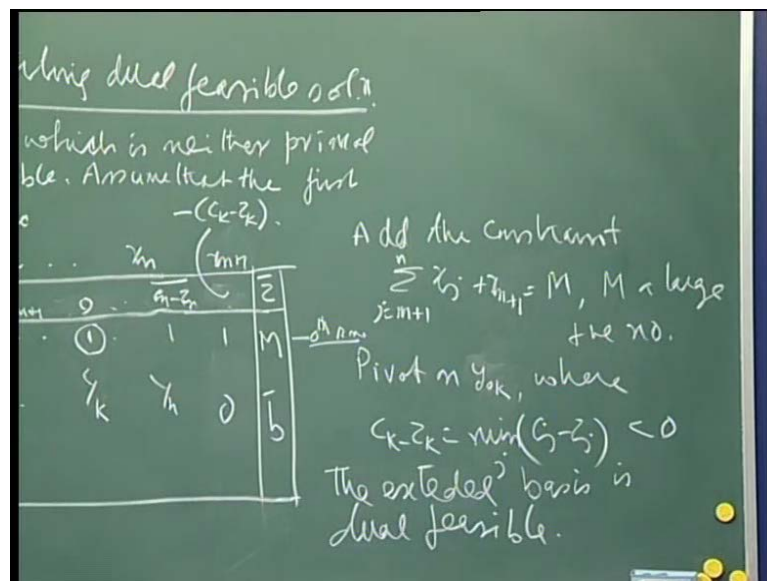 dual feasible sol.n.
which is neither primal
ble. Assume that the first
-(c_k-z_k).
. . . x_n x_{n+1}
0 . c_n-z_n z̄
. ① 1 1 M — 0th row
. Y_k Y_n 0 b̄
Add the constraint
\sum_{j=m+1}^{n} x_j + x_{n+1} = M, M a large
+ve no.
Pivot on y_{0k}, where
c_k-z_k = min_j(c_j-z_j) < 0
The exteded basis is
dual feasible.